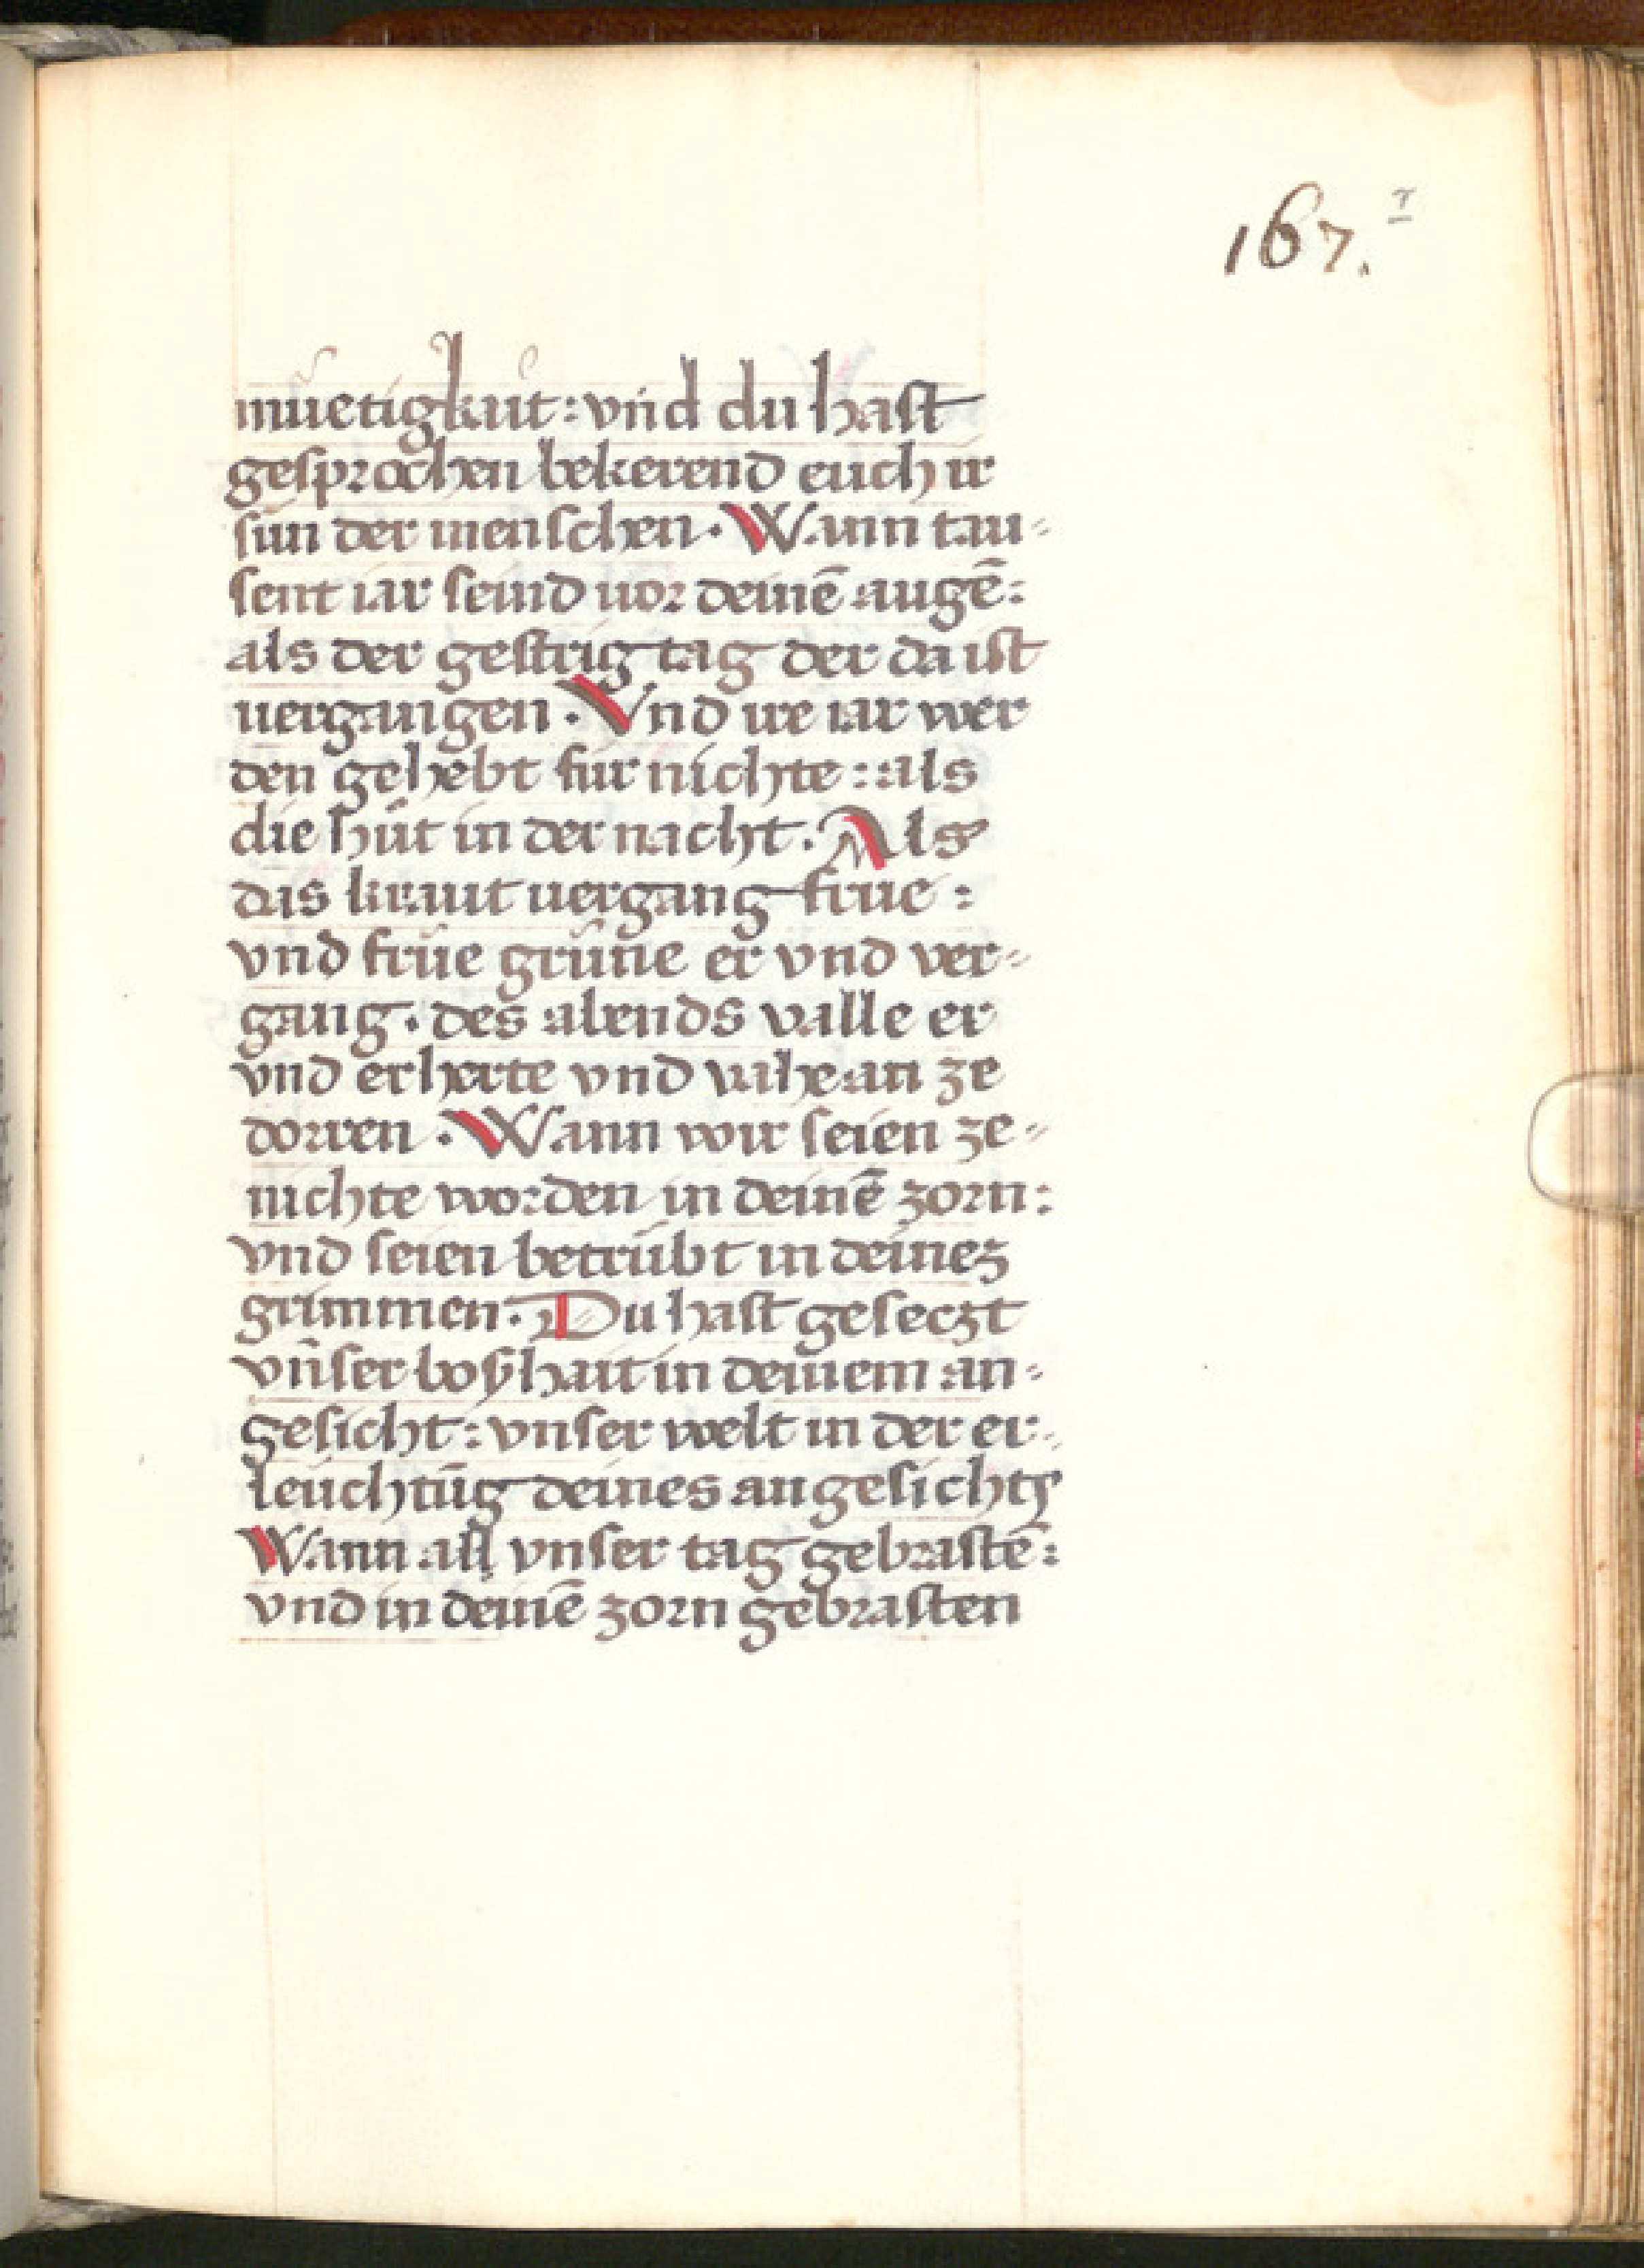 167.
müetigkait: vnd du hast
gesprochen bekerend euch ir
sün der menschen. Wann tau⸗
sent iar seind vor deinē augē:
als der gestrig tag der da ist
uergangen. Vnd ire iar wer
den gehebt für nichte: als
die hůt in der nacht. Als
das kraut uergang früe:
vnd früe grüne er vnd ver⸗
gang. des abends valle er
vnd erherte vnd vahe an ze
dorren. Wann wir seien ze⸗
nichte worden in deinē zorn:
vnd seien betrübt in deinez
grimmen. Du hast geseczt
vnser boßhait in deinem an⸗
gesicht: vnser welt in der er⸗
leüchtūg deines angesichtz
Wann all vnser tag gebrastē:
vnd in deinē zorn gebrasten